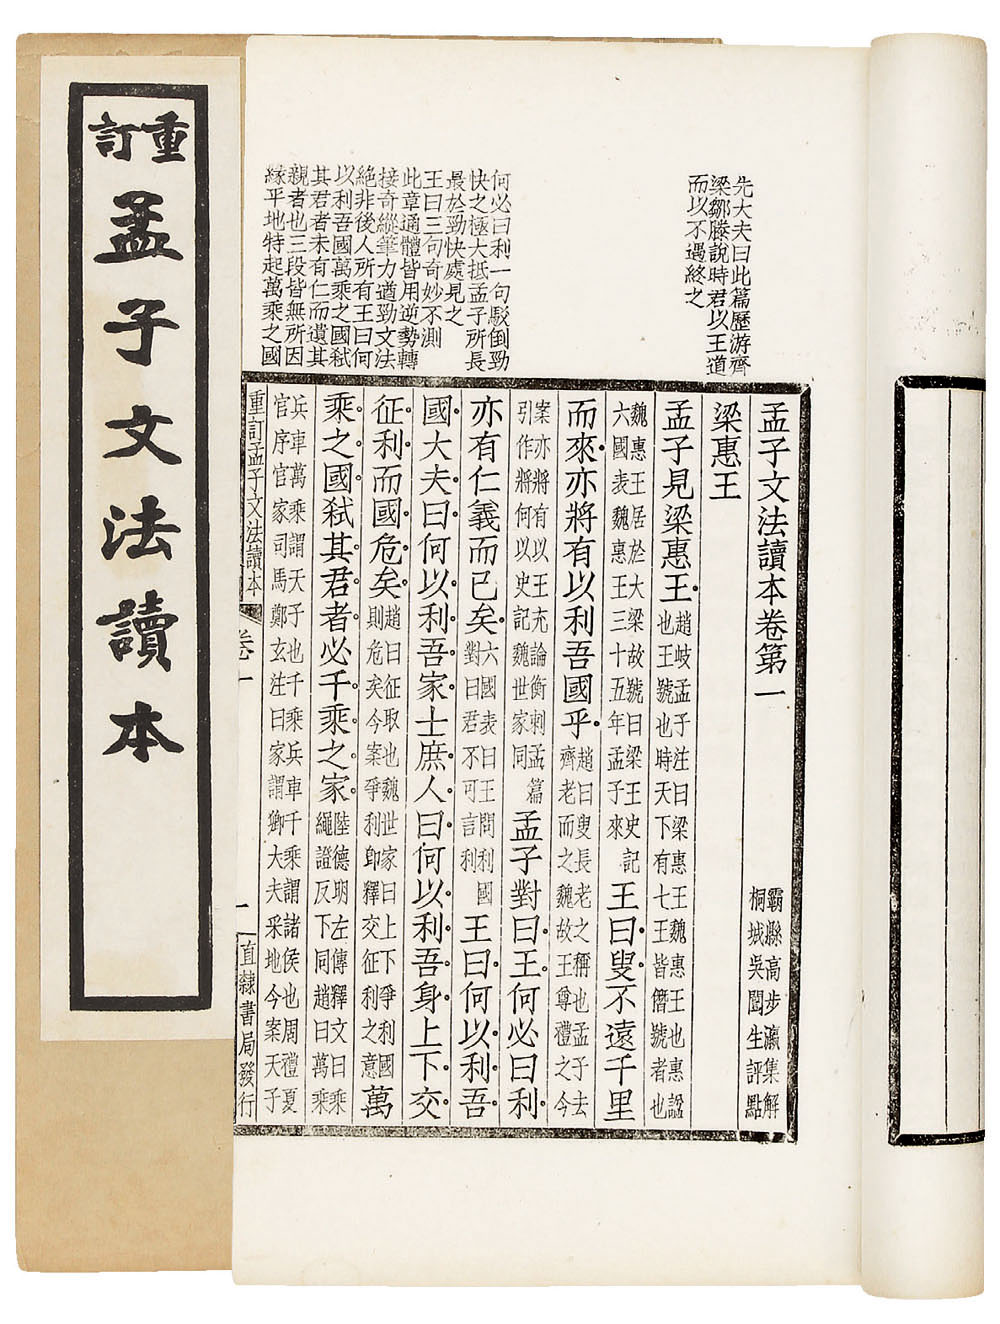 重訂
孟子文法讀本
先大夫曰此篇歷游齊
梁鄒滕說時君以王道
而以不遇終之
何必曰利一句駁倒勁
快之極大抵孟子所長
最於勁快處見之
王曰三句奇妙不測
此章通體皆用逆勢轉
接奇縱筆力遒勁文法
絕非後人所有王曰何
以利吾國萬乘之國弒
其君者未有仁而遺其
親者也三段皆無所因
緣平地特起萬乘之國
孟子文法讀本卷第一
霸縣高步瀛集解
桐城吳闓生評點
梁惠王
孟子見梁惠王趙岐孟子注曰梁惠王魏惠王也惠諡也王號也時天下有七王皆僭號者也
魏惠王居於大梁故號曰梁王史記六國表魏惠王三十五年孟子來王曰叟不遠千里
而來亦將有以利吾國乎趙曰叟長老之稱也孟子去齊老而之魏故王尊禮之今
案亦將有以王充論衡刺孟篇引作將何以史記魏世家同孟子對曰王何必曰利
亦有仁義而已矣六國表曰王問利國對曰君不可言利王曰何以利吾
國大夫曰何以利吾家士庶人曰何以利吾身上下交
征利而國危矣趙曰征取也魏世家曰上下爭利國則危矣今案爭利卽釋交征利之意萬
乘之國弒其君者必千乘之家陸德明左傳釋文曰乘繩證反下同趙曰萬乘
兵車萬乘謂天子也千乘兵車千乘謂諸侯也周禮夏官序官家司馬鄭玄注曰家謂卿大夫采地今案天子
重訂孟子文法讀本 卷一 一 直隸書局發行